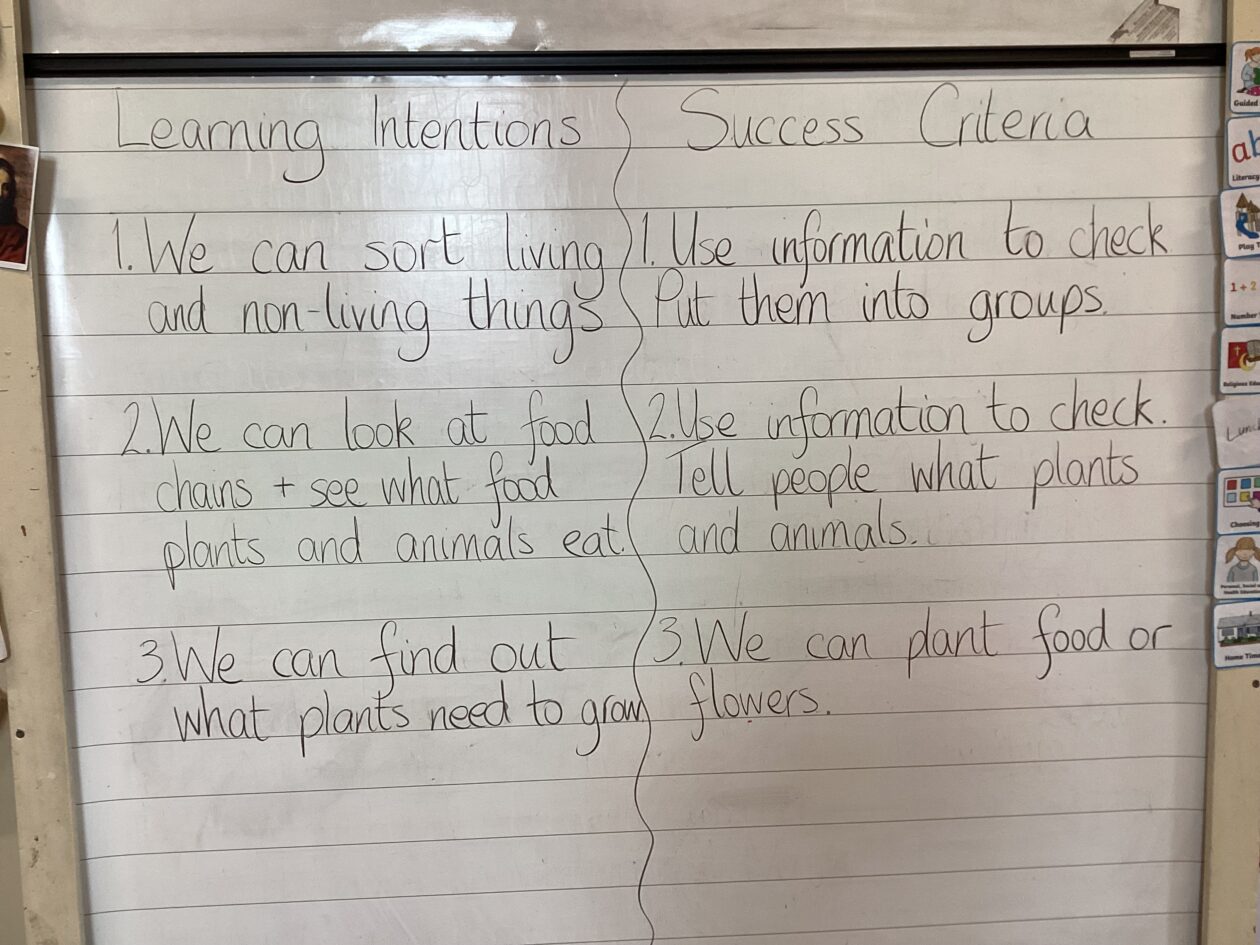 Learning Intentions
1. We can sort living
and non-living things
2. We can look at food
chains + see what food
plants and animals eat.
3. We can find out
what plants need to grow
Success Criteria
1. Use information to check
Put them into groups.
2. Use information to check.
Tell people what plants
and animals.
3. We can plant food or
flowers.
Guided
Literacy
Play
1 + 2
Number
Choosing
Home Time